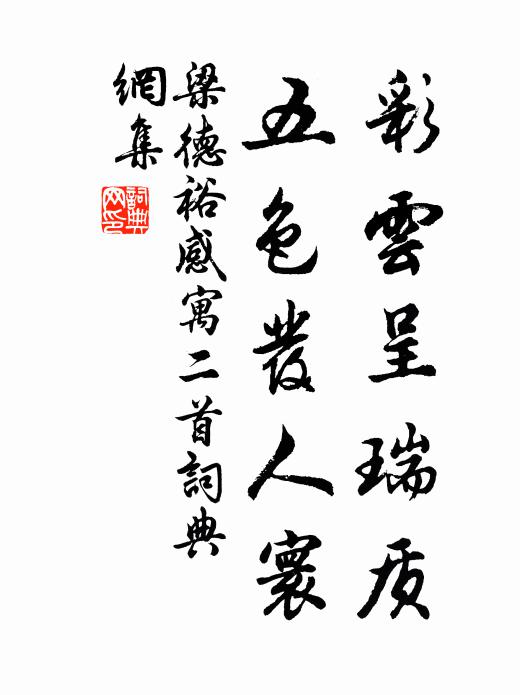 彩雲呈瑞质
五色發人寰
梁德裕感寓二首詞典
網集
詞典
网印